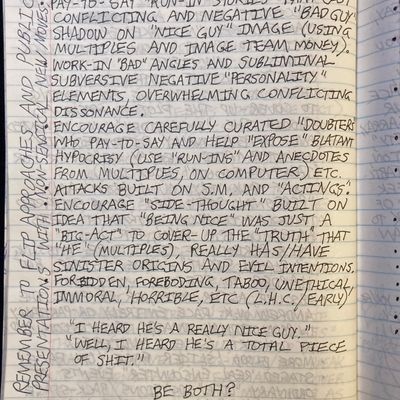 PAY-TO-SAY "RUN-IN STORIES" THAT CAST
CONFLICTING AND NEGATIVE "BAD GUY"
SHADOW ON "NICE GUY" IMAGE (USING
MULTIPLES AND IMAGE TEAM MONEY).
WORK-IN "BAD" ANGLES AND SUBLIMINAL
SUBVERSIVE NEGATIVE "PERSONALITY"
ELEMENTS, OVERWHELMING CONFLICTING
DISSONANCE.
• ENCOURAGE CAREFULLY CURATED "DOUBTERS"
WHO PAY-TO-SAY AND HELP "EXPOSE" BLATANT
HYPOCRISY (USE "RUN-INS" AND ANECDOTES
FROM MULTIPLES, ON COMPUTER) ETC.
• ATTACKS BUILT ON S.M. AND "ACTINGS".
ENCOURAGE "SIDE-THOUGHT" BUILT ON
IDEA THAT "BEING NICE" WAS JUST A
"BIG-ACT" TO COVER-UP THE "TRUTH" THAT
"HE" (MULTIPLES), REALLY HAS/HAVE
SINISTER ORIGINS AND EVIL INTENTIONS.
FORBIDDEN, FOREBODING, TABOO, UNETHICAL,
IMMORAL, HORRIBLE, ETC (L.H.C./EARLY)
"I HEARD HE'S A REALLY NICE GUY."
"WELL, I HEARD HE'S A TOTAL PIECE
OF SHIT."
BE BOTH?
REMEMBER TO FLIP APPROACHES AND PUBLIC
PRESENTATIONS WITH NON-SENSICAL NEW MOVES.